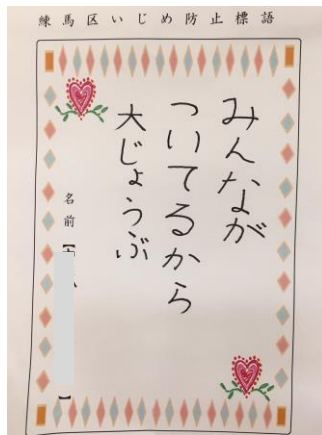 練馬区いじめ防止標語
みんなが
ついてるから
大じょうぶ
名前【
】